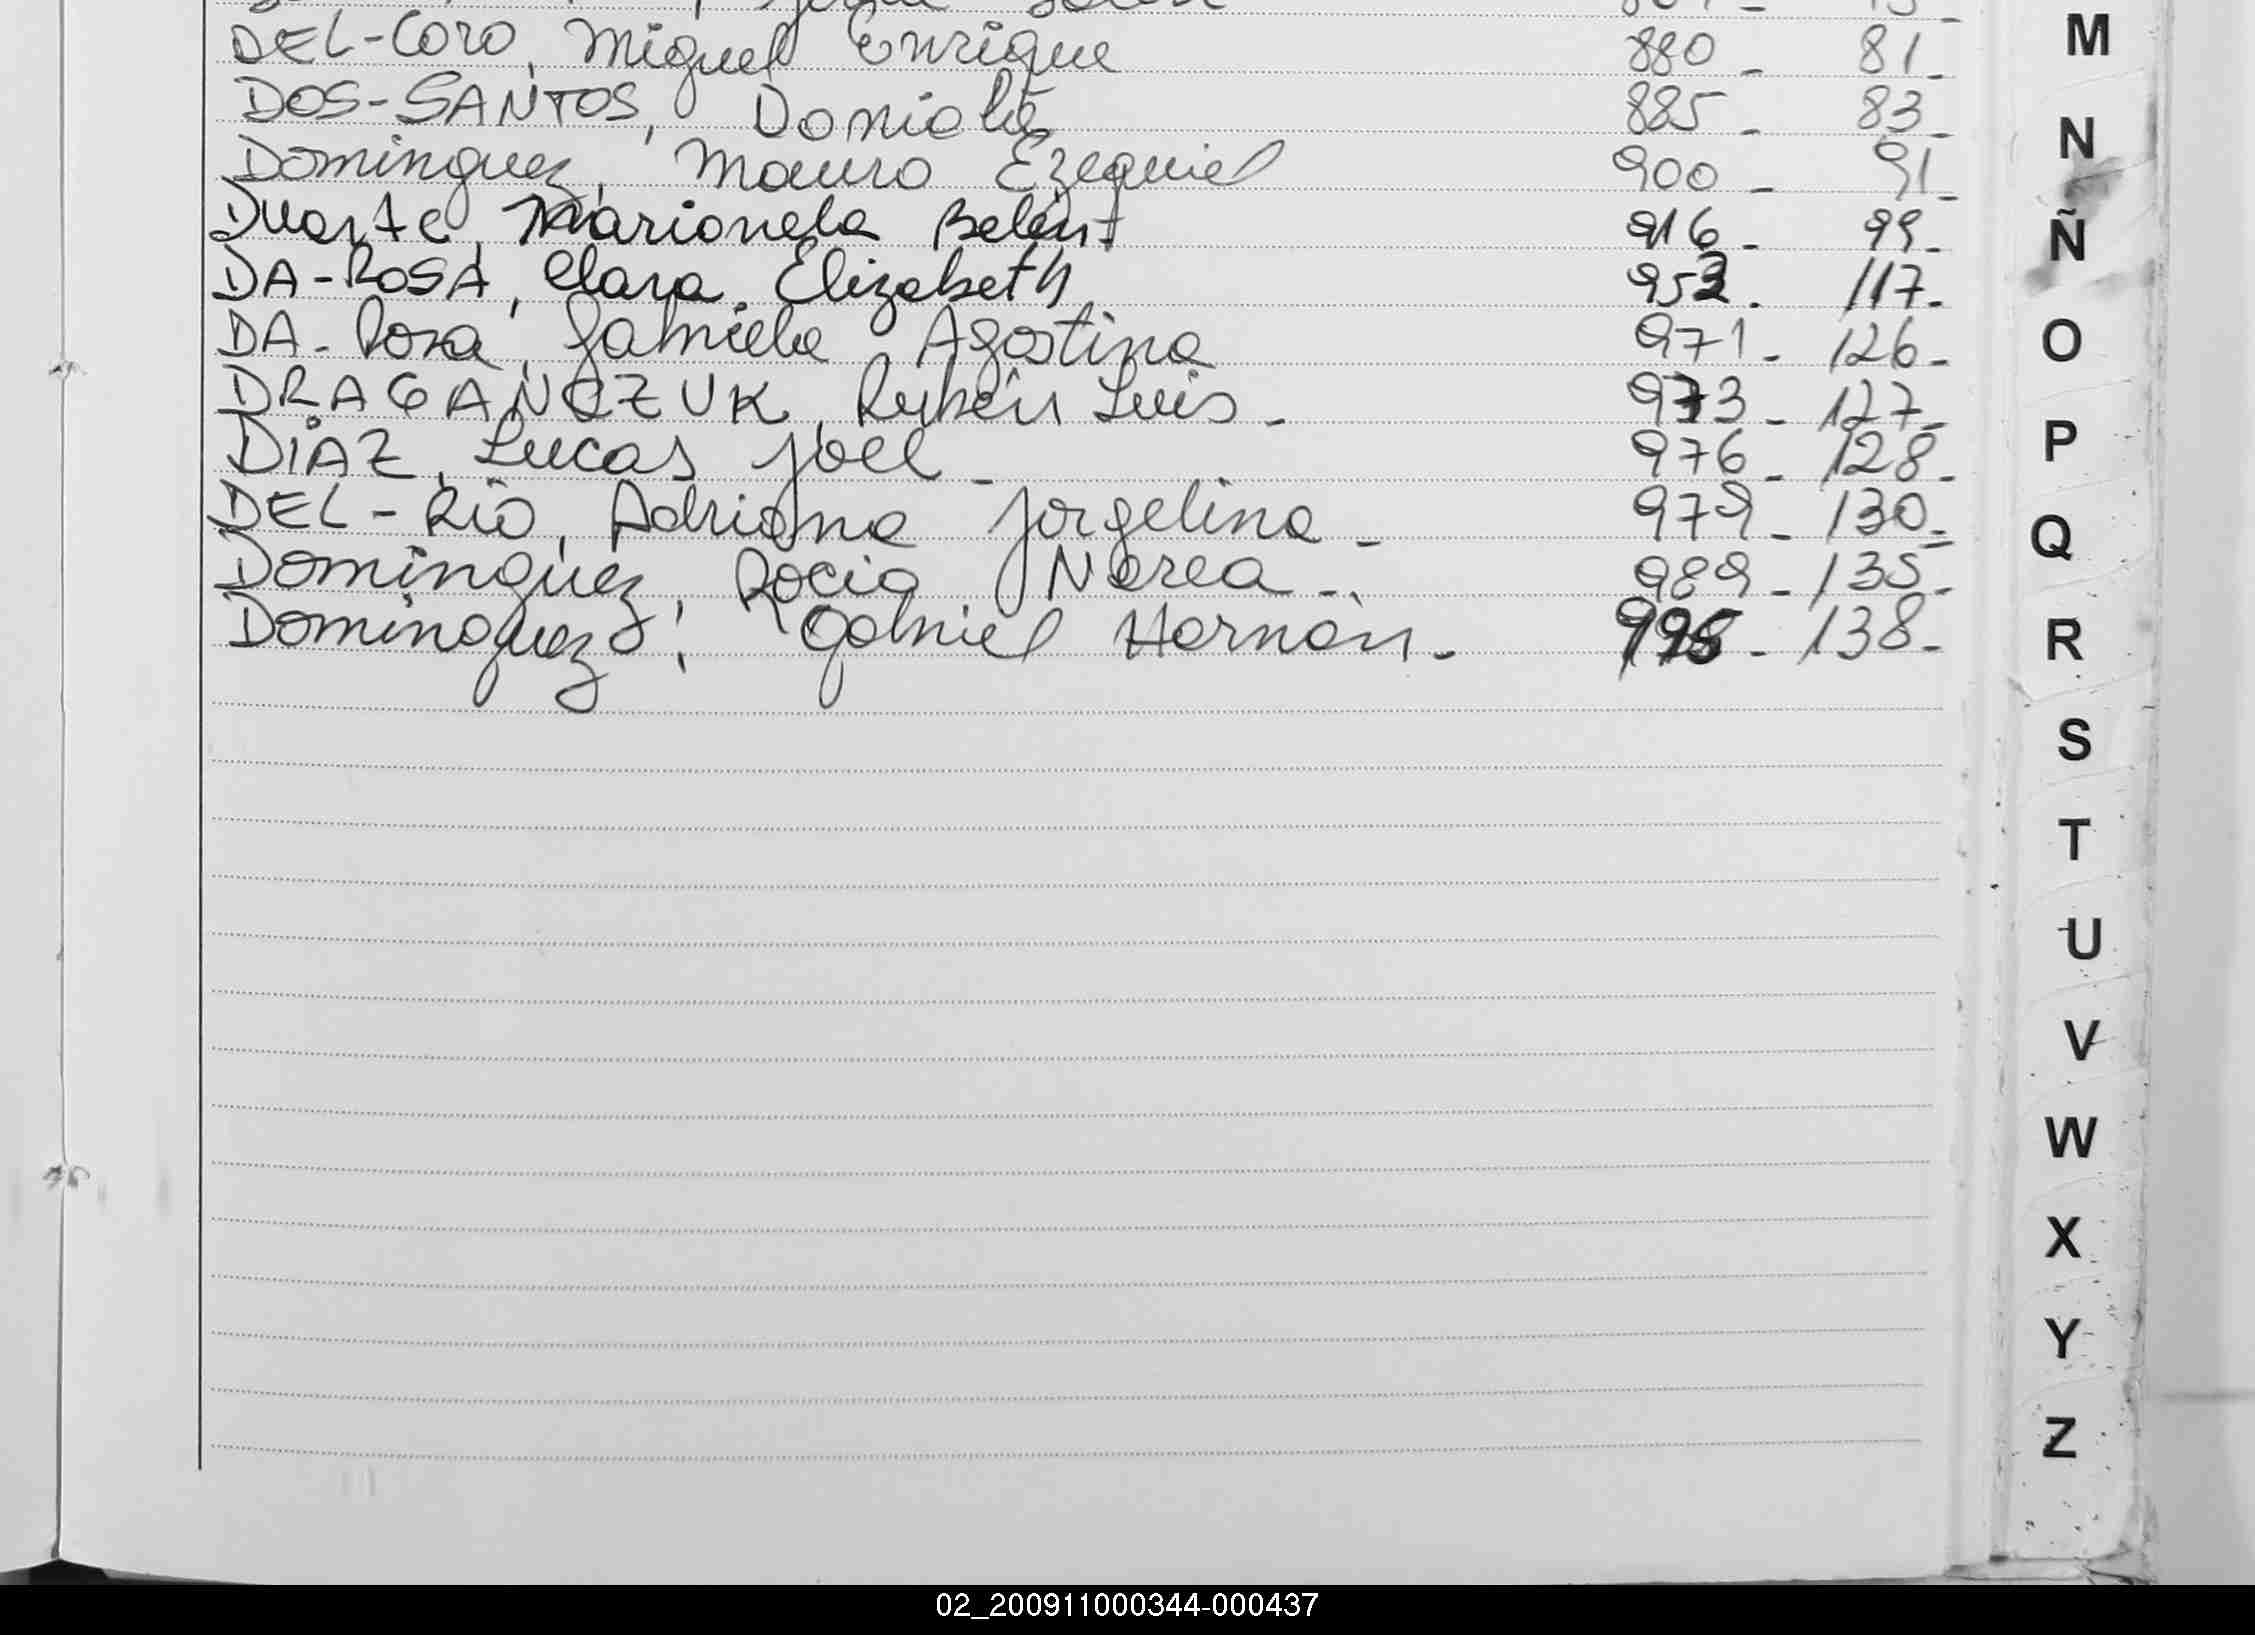 DEL-Coro, Miguel Enrique 880 - 81 -
DOS-SANTOS, Daniela 885 - 83 -
Dominguez, Mauro Ezequiel 900 - 91 -
Duarte, Marianela Belén 916 - 99 -
DA-ROSA, Clara Elizabeth 953 - 117 -
DA-Rosa, Gabriela Agostina 971 - 126 -
DRAGANCZUK, Rubén Luis - 973 - 127 -
DiAZ, Lucas Joel - 976 - 128 -
DEL-Río, Adriana Jorgelina - 979 - 130 -
Dominguez, Rocio Nerea - 989 - 135 -
Dominguez, Gabriel Hernán - 138 -
M
N
Ñ
O
P
Q
R
S
T
U
V
W
X
Y
Z
02_200911000344-000437